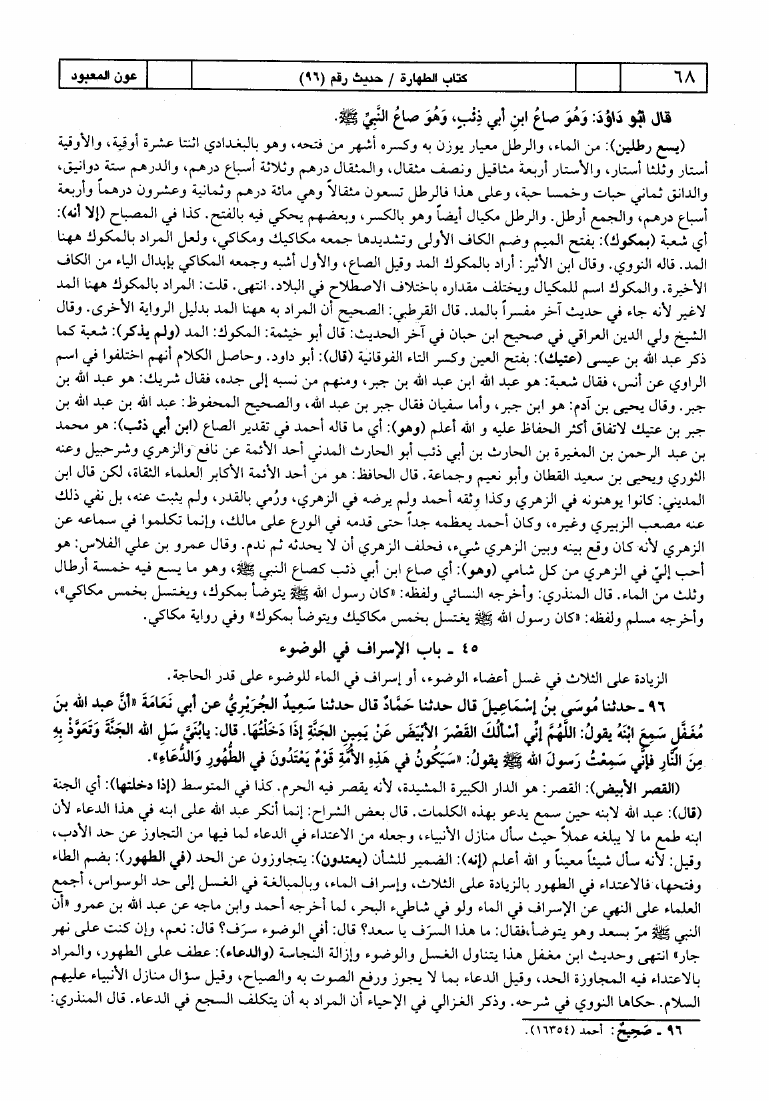 ٦٨ كتاب الطهارة / حديث رقم (٩٦) عون المعبود
قال أبو دَاوُدَ: وَهُوَ صاعُ ابنِ أبي ذِئْبٍ، وَهُوَ صاعُ النَّبيِّ ﷺ.
(يسع رطلين): من الماء، والرطل معيار يوزن به وكسره أشهر من فتحه، وهو بالبغدادي اثنتا عشرة أوقية، والأوقية
أستار وثلثا أستار، والأستار أربعة مثاقيل ونصف مثقال، والمثقال درهم وثلاثة أسباع درهم، والدرهم ستة دوانيق،
والدانق ثماني حبات وخمسا حبة، وعلى هذا فالرطل تسعون مثقالاً وهي مائة درهم وثمانية وعشرون درهماً وأربعة
أسباع درهم، والجمع أرطل. والرطل مكيال أيضاً وهو بالكسر، وبعضهم يحكي فيه بالفتح. كذا في المصباح (إلا أنه):
أي شعبة (بمكوك): بفتح الميم وضم الكاف الأولى وتشديدها جمعه مكاكيك ومكاكي، ولعل المراد بالمكوك ههنا
المد. قاله النووي. وقال ابن الأثير: أراد بالمكوك المد وقيل الصاع، والأول أشبه وجمعه المكاكي بإبدال الياء من الكاف
الأخيرة. والمكوك اسم للمكيال ويختلف مقداره باختلاف الاصطلاح في البلاد. انتهى. قلت: المراد بالمكوك ههنا المد
لاغير لأنه جاء في حديث آخر مفسراً بالمد. قال القرطبي: الصحيح أن المراد به ههنا المد بدليل الرواية الأخرى. وقال
الشيخ ولي الدين العراقي في صحيح ابن حبان في آخر الحديث: قال أبو خيثمة: المكوك: المد (ولم يذكر): شعبة كما
ذكر عبد الله بن عيسى (عتيك): بفتح العين وكسر التاء الفوقانية (قال): أبو داود. وحاصل الكلام أنهم اختلفوا في اسم
الراوي عن أنس، فقال شعبة: هو عبد الله ابن عبد الله بن جبر، ومنهم من نسبه إلى جده، فقال شريك: هو عبد الله بن
جبر. وقال يحيى بن آدم: هو ابن جبر، وأما سفيان فقال جبر بن عبد الله، والصحيح المحفوظ: عبد الله بن عبد الله بن
جبر بن عتيك لاتفاق أكثر الحفاظ عليه و الله أعلم (وهو): أي ما قاله أحمد في تقدير الصاع (ابن أبي ذئب): هو محمد
بن عبد الرحمن بن المغيرة بن الحارث بن أبي ذئب أبو الحارث المدني أحد الأئمة عن نافع والزهري وشرحبيل وعنه
الثوري ويحيى بن سعيد القطان وأبو نعيم وجماعة. قال الحافظ: هو من أحد الأئمة الأكابر العلماء الثقاة، لكن قال ابن
المديني: كانوا يوهنونه في الزهري وكذا وثقه أحمد ولم يرضه في الزهري، ورُمي بالقدر، ولم يثبت عنه، بل نفي ذلك
عنه مصعب الزبيري وغيره، وكان أحمد يعظمه جداً حتى قدمه في الورع على مالك، وإنما تكلموا في سماعه عن
الزهري لأنه كان وقع بينه وبين الزهري شيء، فحلف الزهري أن لا يحدثه ثم ندم. وقال عمرو بن علي الفلاس: هو
أحب إليّ في الزهري من كل شامي (وهو): أي صاع ابن أبي ذئب كصاع النبي ﷺ، وهو ما يسع فيه خمسة أرطال
وثلث من الماء. قال المنذري: وأخرجه النسائي ولفظه: «كان رسول الله ﷺ يتوضأ بمكوك، ويغتسل بخمس مكاكي»،
وأخرجه مسلم ولفظه: «كان رسول الله ﷺ يغتسل بخمس مكاكيك ويتوضأ بمكوك» وفي رواية مكاكي.
٤٥ ـ باب الإسراف في الوضوء
الزيادة على الثلاث في غسل أعضاء الوضوء، أو إسراف في الماء للوضوء على قدر الحاجة.
٩٦ ـ حدثنا مُوسَى بنُ إسْمَاعِيلَ قال حدثنا حَمَّادٌ قال حدثنا سَعِيدٌ الجُرَيْرِيُّ عن أبي نَعَامَةَ «أنَّ عبد الله بنَ
مُغَفَّلٍ سَمِعَ ابْنَهُ يقولُ: اللَّهُمَّ إنِّي أسْألُكَ القَصْرَ الأبْيَضَ عَنْ يَمِينِ الجَنَّةِ إذَا دَخَلْتُهَا. قال: يابُنَيَّ سَلِ الله الجَنَّةَ وَتَعَوَّذْ بِهِ
مِنَ النَّارِ فإنِّي سَمِعْتُ رَسولَ الله ﷺ يقولُ: «سَيَكُونُ في هَذِهِ الأُمَّةِ قَوْمٌ يَعْتَدُونَ في الطُّهُورِ وَالدُّعَاءِ».
(القصر الأبيض): القصر: هو الدار الكبيرة المشيدة، لأنه يقصر فيه الحرم. كذا في المتوسط (إذا دخلتها): أي الجنة
(قال): عبد الله لابنه حين سمع يدعو بهذه الكلمات. قال بعض الشراح: إنما أنكر عبد الله على ابنه في هذا الدعاء لأن
ابنه طمع ما لا يبلغه عملاً حيث سأل منازل الأنبياء، وجعله من الاعتداء في الدعاء لما فيها من التجاوز عن حد الأدب،
وقيل: لأنه سأل شيئاً معيناً و الله أعلم (إنه): الضمير للشأن (يعتدون): يتجاوزون عن الحد (في الطهور): بضم الطاء
وفتحها، فالاعتداء في الطهور بالزيادة على الثلاث، وإسراف الماء، وبالمبالغة في الغسل إلى حد الوسواس، أجمع
العلماء على النهي عن الإسراف في الماء ولو في شاطىء البحر، لما أخرجه أحمد وابن ماجه عن عبد الله بن عمرو «أن
النبي ﷺ مرّ بسعد وهو يتوضأ،فقال: ما هذا السرَف يا سعد؟ قال: أفي الوضوء سرَف؟ قال: نعم، وإن كنت على نهر
جار» انتهى وحديث ابن مغفل هذا يتناول الغسل والوضوء وإزالة النجاسة (والدعاء): عطف على الطهور، والمراد
بالاعتداء فيه المجاوزة الحد، وقيل الدعاء بما لا يجوز ورفع الصوت به والصياح، وقيل سؤال منازل الأنبياء عليهم
السلام. حكاها النووي في شرحه. وذكر الغزالي في الإحياء أن المراد به أن يتكلف السجع في الدعاء. قال المنذري:
٩٦ ـ صَحِيحٌ: أحمد (١٦٣٥٤).